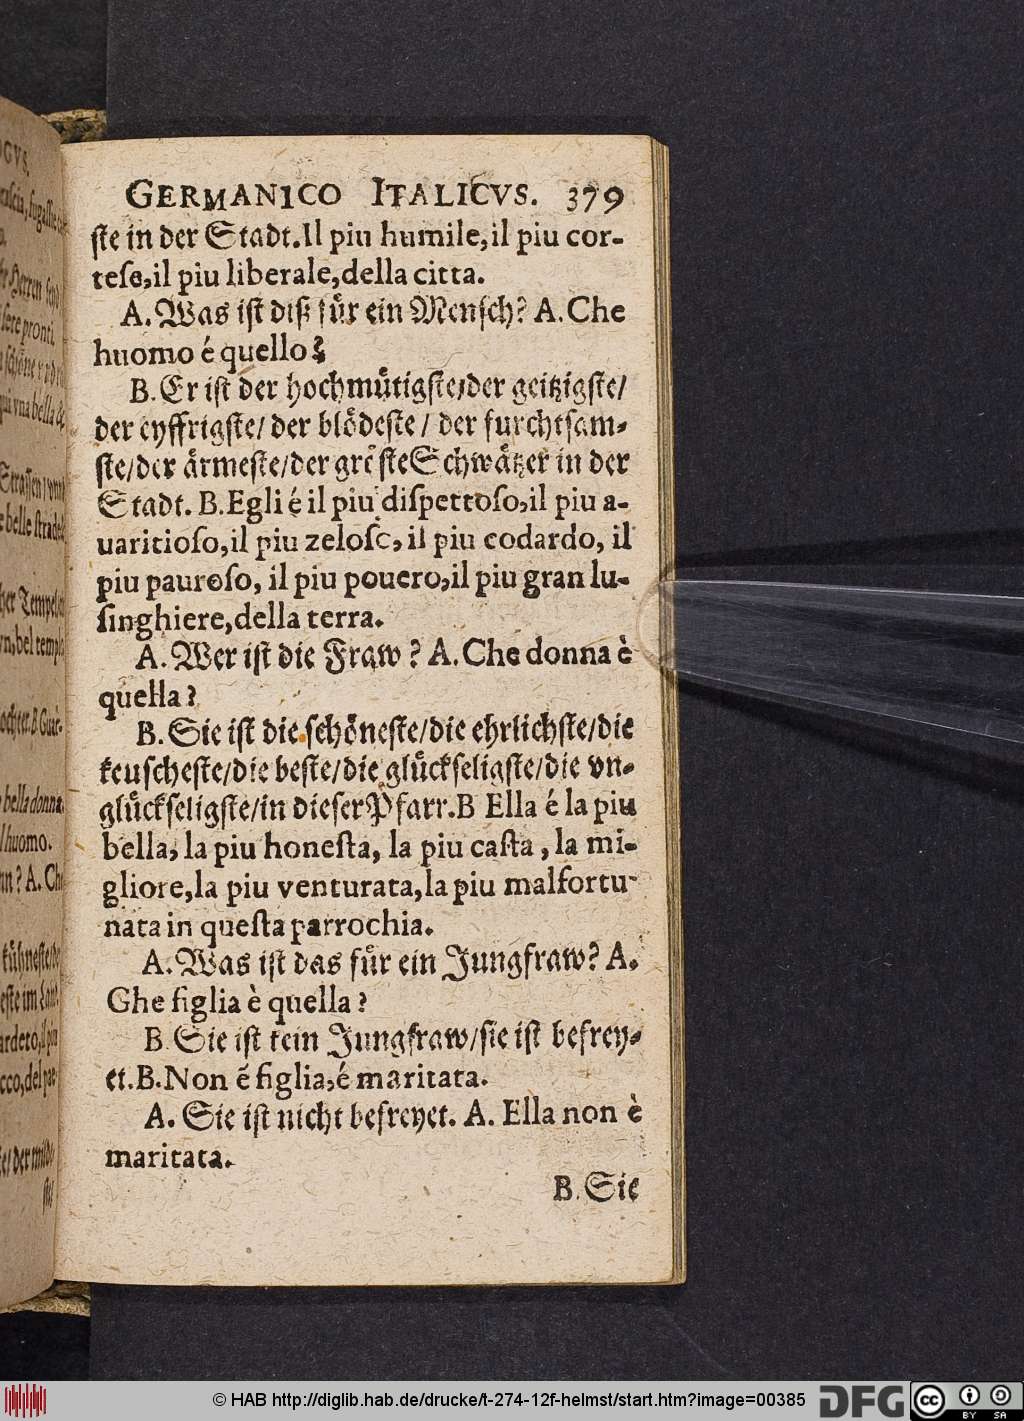 GERMANICO ITALICVS. 379
ſte in der Stadt. Il piu humile, il piu cor-
teſe, il piu liberale, della citta.
A. Was iſt diß für ein Menſch? A. Che
huomo é quello?
B. Er iſt der hochmütigſte/der geitzigſte/
der eyffrigſte/ der blödeſte / der furchtſam-
ſte/der ärmeſte/der gröſte Schwätzer in der
Stadt. B. Egli é il piu diſpettoſo, il piu a-
uaritioſo, il piu zeloſo, il piu codardo, il
piu pauroſo, il piu pouero, il piu gran lu-
ſinghiere, della terra.
A. Wer iſt die Fraw? A. Che donna è
quella?
B. Sie iſt die ſchöneſte/die ehrlichſte/die
keuſcheſte/die beſte/die glückſeligſte/die vn-
glückſeligſte/in dieſer Pfarr. B Ella é la piu
bella, la piu honeſta, la piu caſta, la mi-
gliore, la piu venturata, la piu malfortu-
nata in queſta parrochia.
A. Was iſt das für ein Jungfraw? A.
Ghe figlia è quella?
B. Sie iſt kein Jungfraw/ſie iſt befrey-
et. B. Non ẽ figlia, é maritata.
A. Sie iſt nicht befreyet. A. Ella non è
maritata.
B. Sie
© HAB http://diglib.hab.de/drucke/t-274-12f-helmst/start.htm?image=00385
DFG
cc BY SA